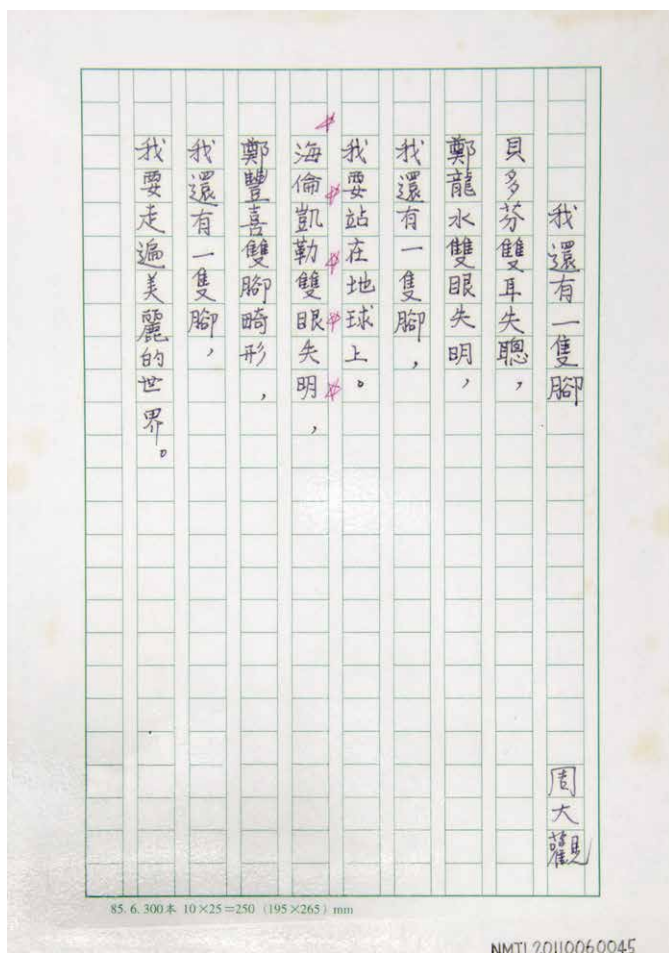 我還有一隻腳
周大觀
貝多芬雙耳失聰,
鄭龍水雙眼失明,
我還有一隻腳,
我要站在地球上。
海倫凱勒雙眼失明,
鄭豐喜雙腳畸形,
我還有一隻腳,
我要走遍美麗的世界。
85.6.300本 10×25=250 (195×265) mm
NMTL20110060045